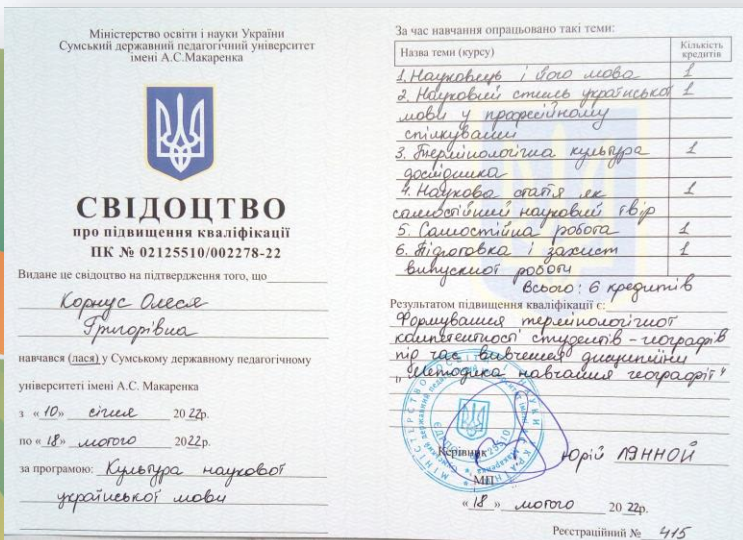 Міністерство освіти і науки України
Сумський державний педагогічний університет
імені А.С.Макаренка
СВІДОЦТВО
про підвищення кваліфікації
ПК № 02125510/002278-22
Видане це свідоцтво на підтвердження того, що
Корнус Олеся
Григорівна
навчався (лася) у Сумському державному педагогічному
університеті імені А.С. Макаренка
з «10» січня 2022р.
по «18» лютого 2022р.
за програмою: Культура наукової
української мови
За час навчання опрацьовано такі теми:
Назва теми (курсу) Кількість
кредитів
1. Науковець і його мова 1
2. Науковий стиль української 1
мови у професійному
спілкуванні
3. Термінологічна культура 1
дослідника
4. Наукова стаття як 1
самостійний науковий твір
5. Самостійна робота 1
6. Підготовка і захист 1
випускної роботи
Всього: 6 кредитів
Результатом підвищення кваліфікації є:
Формування термінологічної
компетентності студентів-географів
під час вивчення дисципліни
"Методика навчання географії"
Керівник Юрій ЛЯННОЙ
МП
«18» лютого 2022р.
Реєстраційний № 415